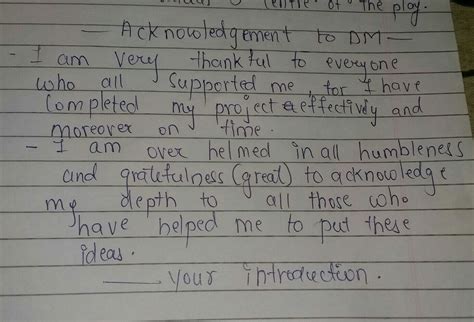 centre of the play.
— Acknowledgement to DM —
- I am very thankful to everyone
who all supported me, for I have
completed my project effectively and
moreover on time.
- I am over helmed in all humbleness
and gratefulness (great) to acknowledge
my depth to all those who
have helped me to put these
ideas.
— your introduction.